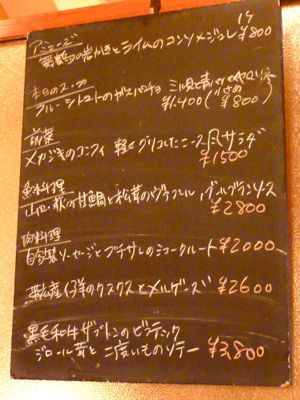 アミューズ
舞鶴の岩がきとライムのコンソメジュレ 1ケ ¥800
本日のスープ
フルーツトマトのガスパチョ
¥1400 (小さめ ¥800)
前菜
メカジキのコンフィ 軽くグリエしたニース風サラダ
¥1500
魚料理
山口・萩の甘鯛と松茸のヴァプール、ブールブランソース
¥2800
肉料理
自家製ソーセージとプティサレのシュークルート ¥2000
産仔羊のクスクスとメルゲーズ ¥2600
黒毛和牛ザブトンのビフテック
ジロール茸と二度いものソテー ¥3,800